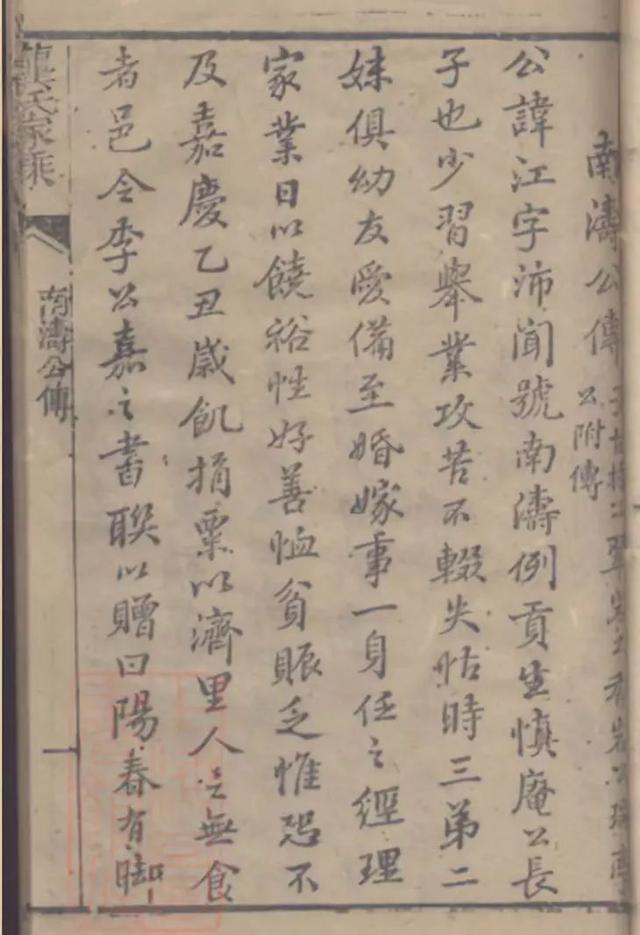 南濤公傳
公附傳
公諱江字沛聞號南濤例貢生慎庵公長
子也少習舉業攻苦不輟失怙時三弟二
妹俱幼友愛備至婚嫁事一身任之經理
家業日以饒裕性好善恤貧賑乏惟恐不
及嘉慶乙丑歲飢捐粟以濟里人之無食
者邑令李公嘉之書聯以贈曰陽春有脚
氏家乘
南濤公傳
一